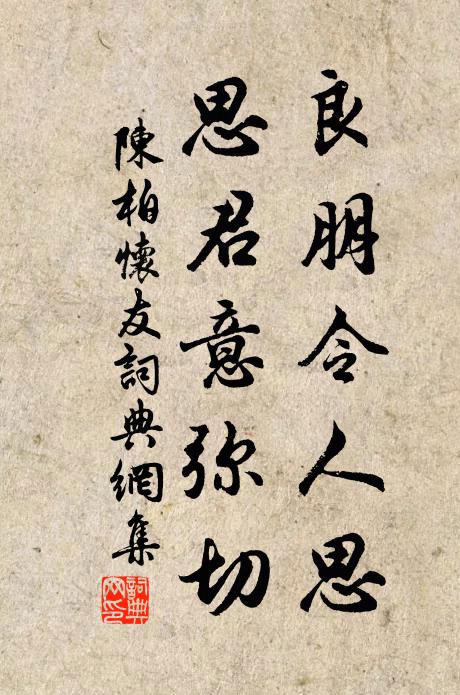 良朋令人思
思君意弥切
陳柏懷友詞典網集
詞典
网印